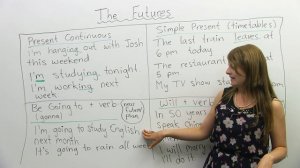 The Futures
Present Continuous
I'm hanging out with Josh
this weekend
I'm studying tonight
I'm working next
week
Be Going to + verb
(gonna)
near
future/
plan
I'm going to study English
next month
It's going to rain all week
Simple Present (timetables)
The last train leaves at
6 pm today
The restaurant
5 pm.
My TV show star
Will + verb
In 50 years
Speak Chin
I'll marry
I'll do it.